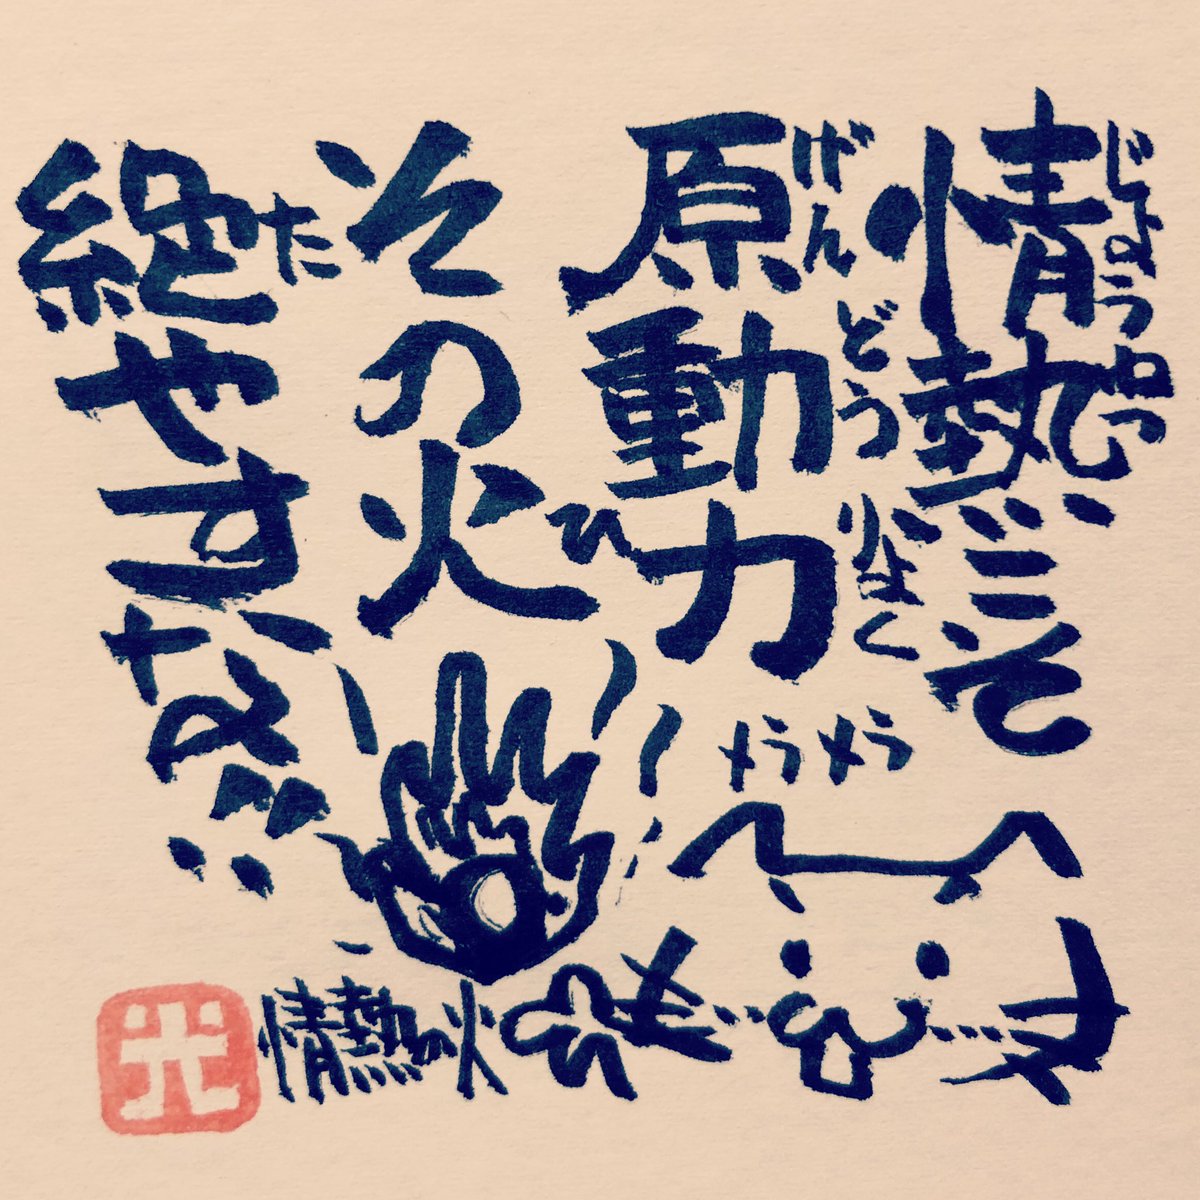 情熱こそ
じょうねつ
原動力
げんどうりょく
その火
ひ
絶やすな!!
た
メラメラ
情熱の火
光